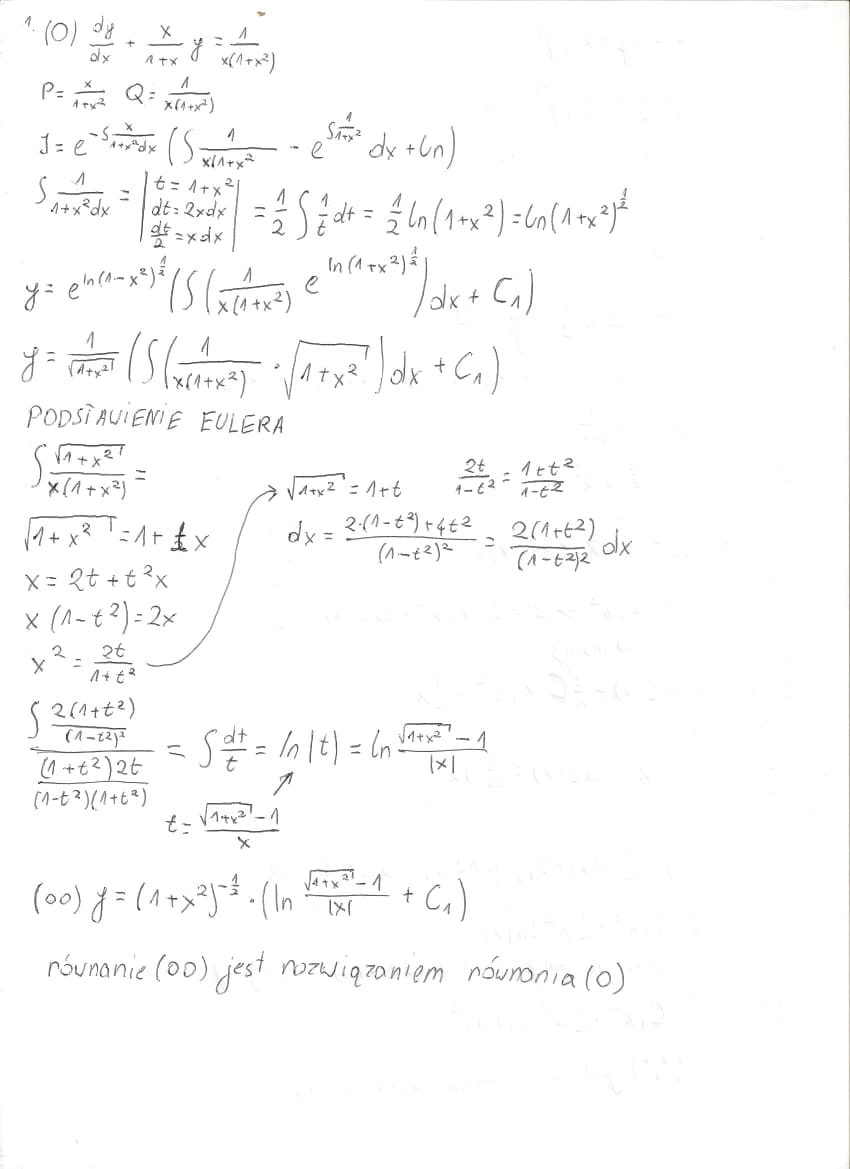 1. (O) dy/dx + x/(1+x) y = 1/(x(1+x²))
P = x/(1+x²) Q = 1/(x(1+x²))
J = e^(-∫ x/(1+x²)dx) (∫ 1/(x(1+x²) - e^(∫ 1/(1+x²)) dx + Cn)
∫ 1/(1+x²dx) = | t = 1+x² dt = 2xdx dt/2 = xdx | = 1/2 ∫ 1/t dt = 1/2 ln(1+x²) = ln(1+x²)^(1/2)
y = e^(ln(1-x²)^(1/2)) (∫ (1/(x(1+x²)) e^(ln(1+x²)^(1/2))) dx + C₁)
y = 1/√(1+x²) (∫ (1/(x(1+x²)) · √(1+x²)) dx + C₁)
PODSTAWIENIE EULERA
∫ √(1+x²)/(x(1+x²)) =
√(1+x²) = 1+tx
x = 2t + t²x
x(1-t²) = 2x
x² = 2t/(1+t²)
√(1+x²) = 1+t 2t/(1-t²) = (1+t²)/(1-t²)
dx = (2·(1-t²)+4t²)/(1-t²)² = 2(1+t²)/(1-t²)² dx
∫ (2(1+t²)/(1-t²)²)/((1+t²)2t/((1-t²)(1+t²))) = ∫ dt/t = ln|t| = ln (√(1+x²) - 1)/|x|
t = (√(1+x²) - 1)/x
(OO) y = (1+x²)^(-1/2) · (ln (√(1+x²) - 1)/|x| + C₁)
równanie (OO) jest rozwiązaniem równania (O)